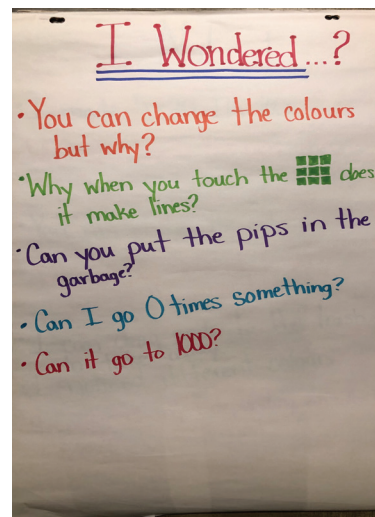 I Wondered...?
• You can change the colours
but why?
• Why when you touch the does
it make lines?
• Can you put the pips in the
garbage?
• Can I go 0 times something?
• Can it go to 1000?